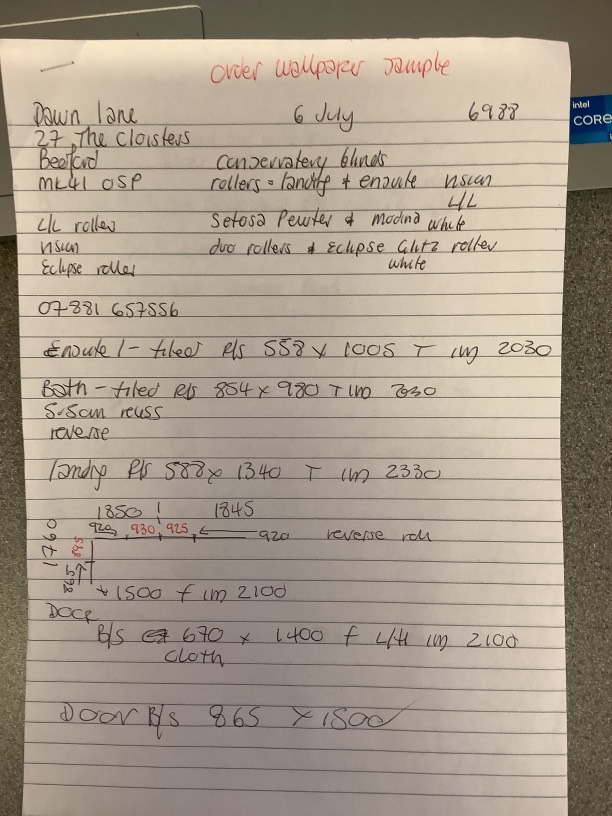 order wallpaper sample
Dawn Lane 6 July 6988
27 The Cloisters
Bedford conservatory blinds
MK41 0SP rollers = landing + ensuite vision
L/L
L/L roller Setosa Pewter + modina white
vision duo rollers + Eclipse Glitz roller
Eclipse roller white
07881 657556
Ensuite 1 - tiled R/S 558 x 1005 T 1m 2030
Bath - tiled R/S 854 x 980 T 1m 2030
5.5cm
reverse
landing R/S 588 x 1340 T 1m 2330
1850 1845
920 930 925 920 reverse roll
1790
895
895
x 1500 f 1m 2100
Door
B/S 670 x 1400 f L/H 1m 2100
cloth
Door B/S 865 x 1500
intel
CORE